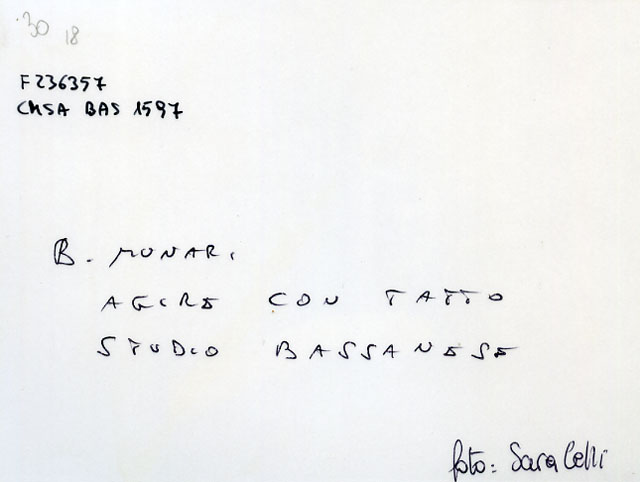 30 18
F236357
CMSA BAS 1597
B. MUNARI
AGIRE CON TATTO
STUDIO BASSANESE
foto: Sara Celli